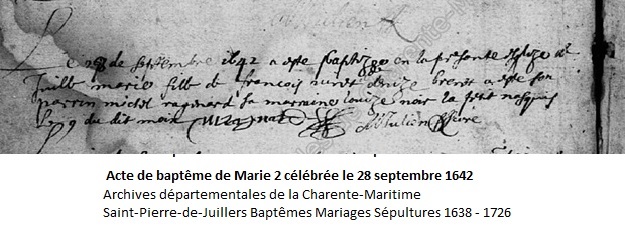 Le 28 de septembre 1642 a este baptizee en la presente esglize de
Juille marie fille de francois et de denize brenet a este son
parrin michel raynard sa marrainne louize noir la petit nasquit
le 9 du dit mois
Acte de baptême de Marie 2 célébrée le 28 septembre 1642
Archives départementales de la Charente-Maritime
Saint-Pierre-de-Juillers Baptêmes Mariages Sépultures 1638 - 1726